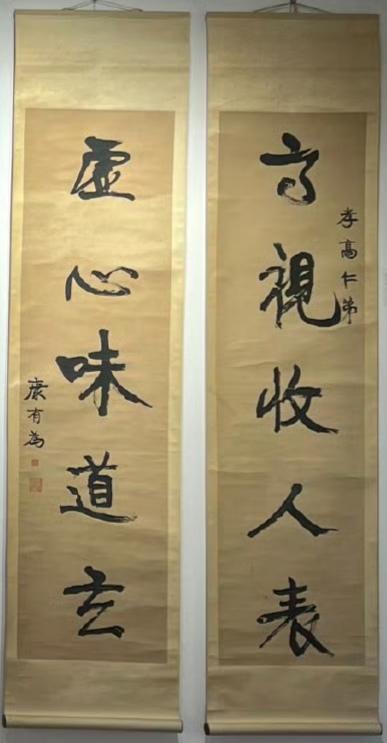 孝高仁弟
高視收人表
虛心味道玄
康有為